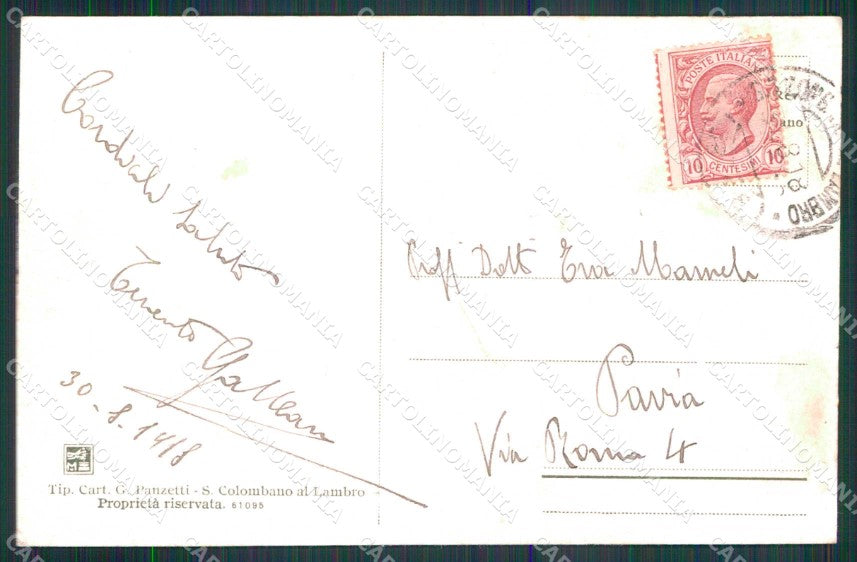 Cordiale saluto
Terento Galleani
30-8-1918
Tip. Cart. G. Panzetti - S. Colombano al Lambro
Proprietà riservata. 61095
POSTE ITALIANE
10 CENTESIMI 10
LAMBRO
Proff Dott Eva Mameli
Pavia
Via Roma 4
CARTOLINOMANIA